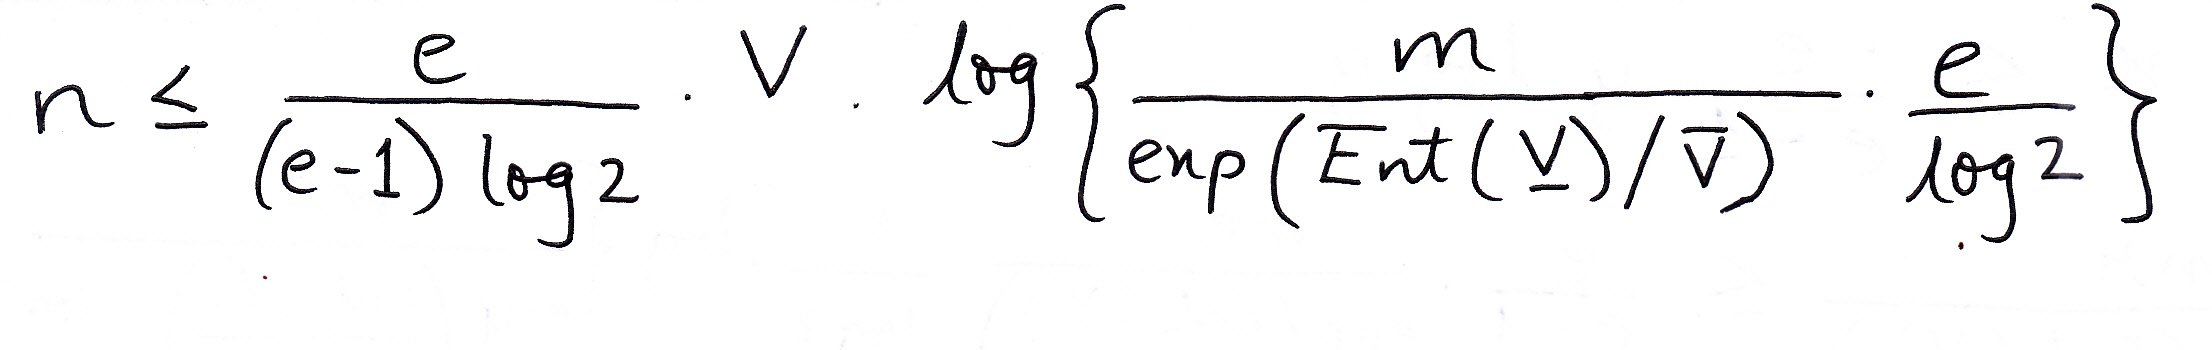 n ≤ e / ((e-1) log 2) · V · log { m / exp(Ent(V̲)/V̅) · e / log 2 }